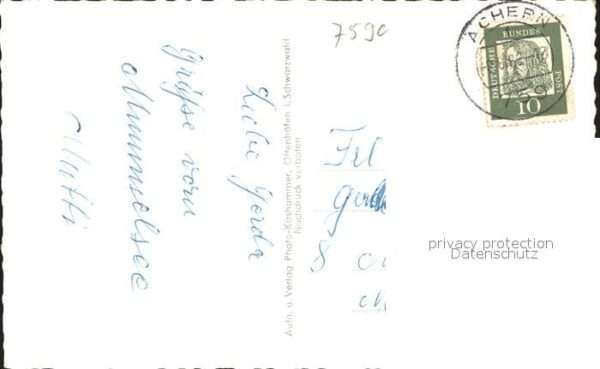 7590
ACHERN
759
DEUTSCHE BUNDESPOST
10
Liebe Gerda
Grüße vom
Mummelsee
Mutti
Aufn. u. Verlag Photo-Kashammer, Ottenhöfen i. Schwarzwald
Nachdruck verboten
8
privacy protection
Datenschutz